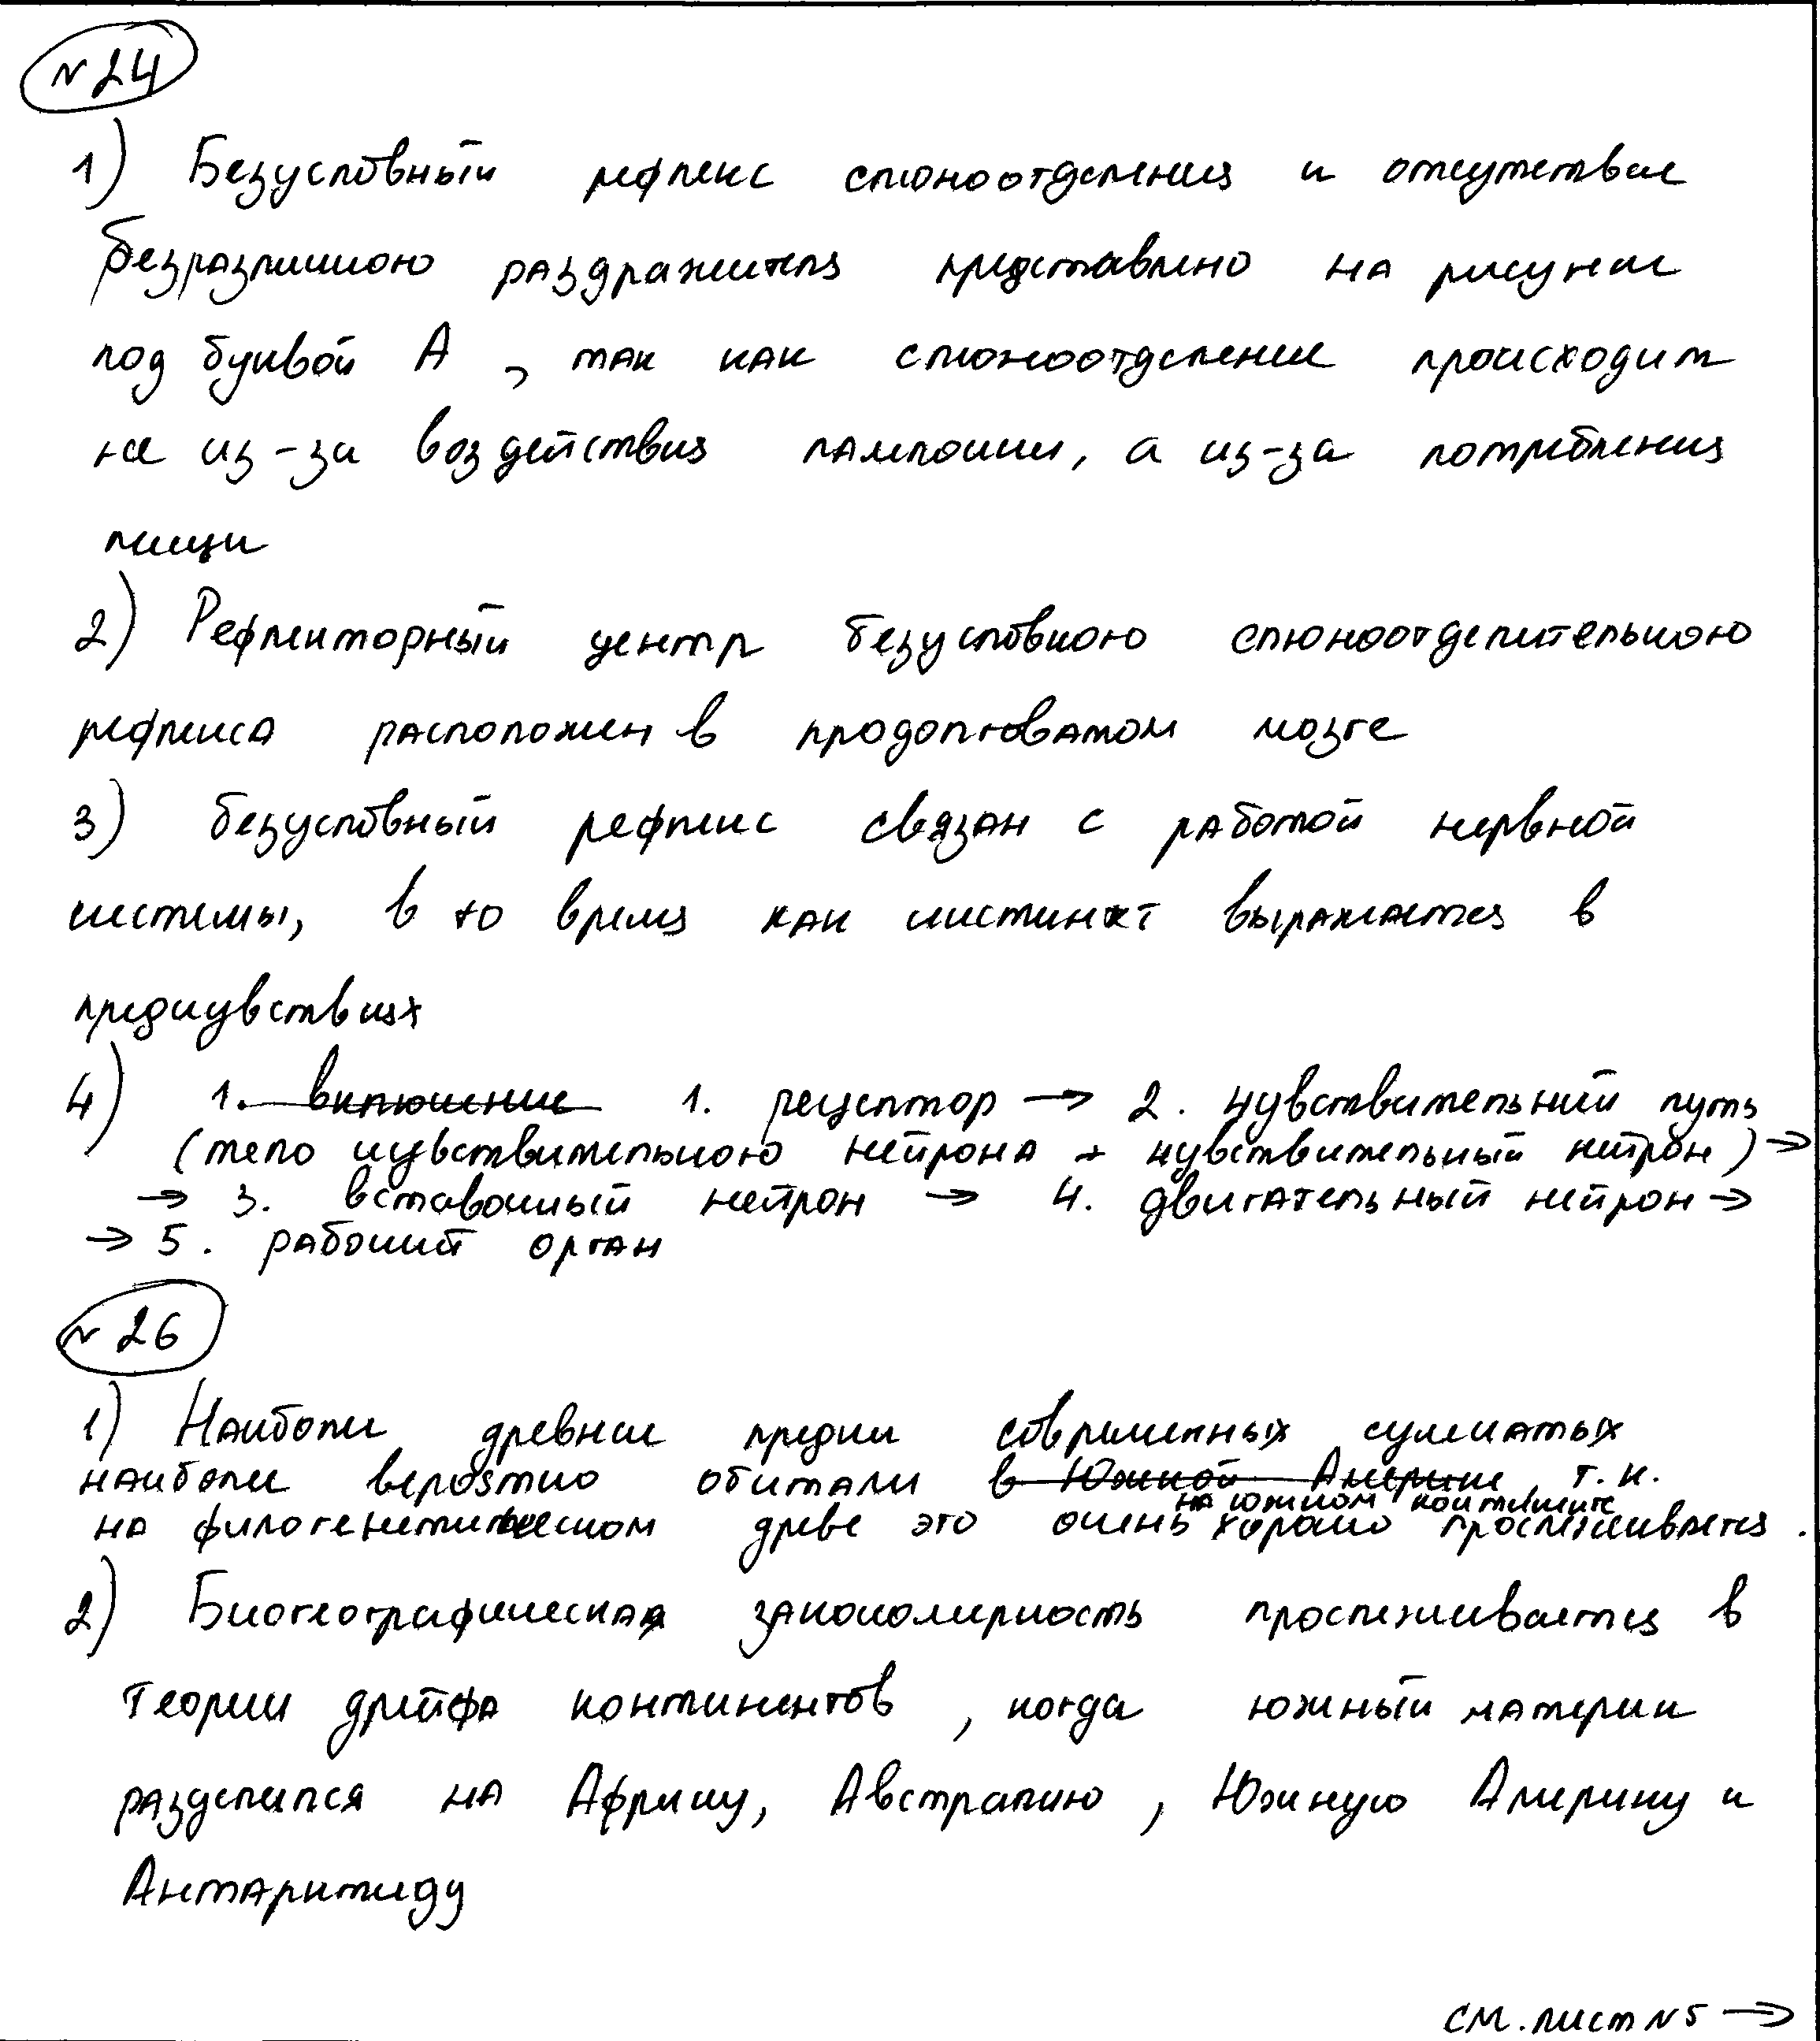 №24
1) Безусловный рефлекс слюноотделения и отсутствие
безразличного раздражителя представлено на рисунке
под буквой А, так как слюноотделение происходит
не из-за воздействия лампочки, а из-за потребления
пищи
2) Рефлекторный центр безусловного слюноотделительного
рефлекса расположен в продолговатом мозге
3) безусловный рефлекс связан с работой нервной
системы, в то время как инстинкт выражается в
предчувствиях
4) 1. включение 1. рецептор → 2. чувствительний путь
(тело чувствительного нейрона + чувствительный нейрон) →
→ 3. вставочный нейрон → 4. двигательный нейрон →
→ 5. рабочий орган
№26
1) Наиболее древние предки современных сумчатых
наиболее вероятно обитали в Южной Америке т.к.
на южном континенте
на филогенетическом древе это очень хорошо прослеживается.
2) Биогеографическая закономерность прослеживается в
теории дрейфа континентов, когда южный материк
разделился на Африку, Австралию, Южную Америку и
Антарктиду
см. лист №5 →